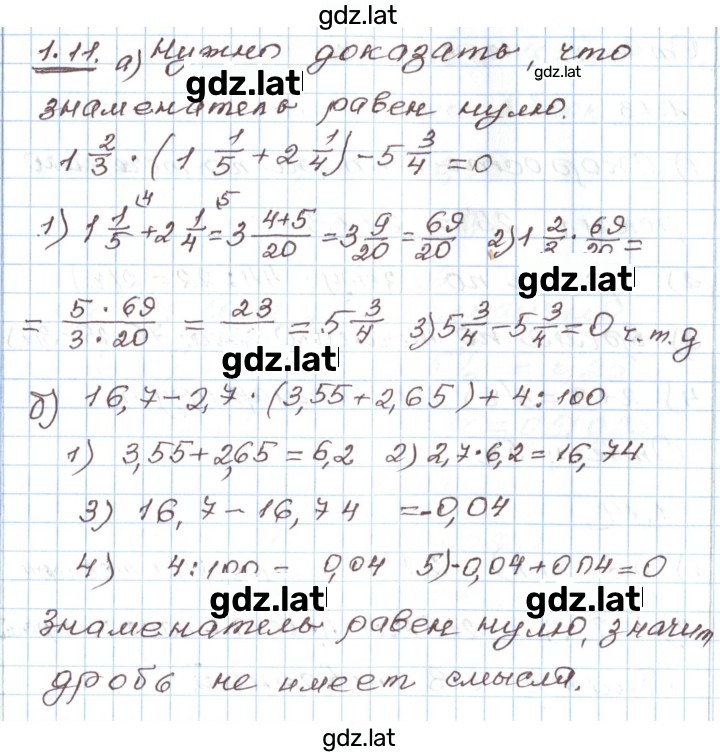 gdz.lat
1.11. а) Нужно доказать, что
gdz.lat
gdz.lat
знаменатель равен нулю.
1 2/3 · (1 1/5 + 2 1/4) - 5 3/4 = 0
1) 1 1/5 (4 + 2 1/4 (5 = 3 4+5/20 = 3 9/20 = 69/20 2) 1 2/3 · 69/20 =
gdz.lat
= 5·69/3·20 = 23/ = 5 3/4 3) 5 3/4 - 5 3/4 = 0 ч.т.д
gdz.lat
б) 16,7 - 2,7 · (3,55 + 2,65) + 4 : 100
1) 3,55 + 2,65 = 6,2 2) 2,7 · 6,2 = 16,74
3) 16,7 - 16,74 = -0,04
4) 4 : 100 = 0,04 5) -0,04 + 0,04 = 0
gdz.lat gdz.lat
Знаменатель равен нулю, значит
дробь не имеет смысла.
gdz.lat